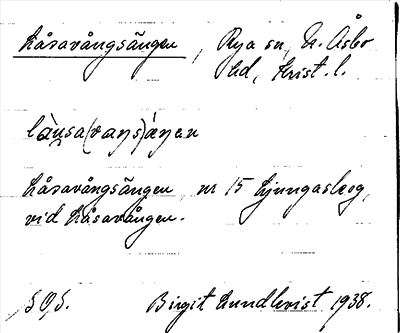 Låsavångsängen, Rya sn, N. Åsbo
hd, Krist. l.
Låsavångsängen, nr 15 Ljungaskog,
vid Låsavången.
SOS. Birgit Lundkvist 1938.